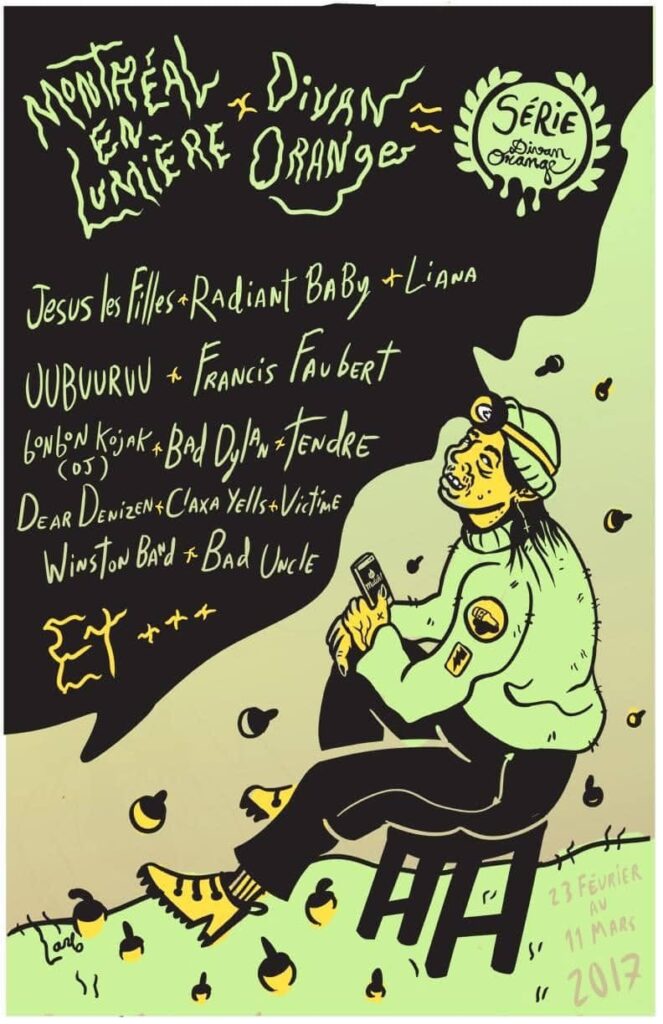 MONTRÉAL
EN
LUMIÈRE
x DIVAN
ORANGE
=
SÉRIE
Divan
Orange
Jesus les Filles + Radiant Baby + Liana
UUBUURUU + Francis Faubert
bonbon Kojak + Bad Dylan + Tendre
(DJ)
Dear Denizen + Claxa Yells + Victime
Winston Band + Bad Uncle
ET + + +
23 FÉVRIER
AU
11 MARS
2017